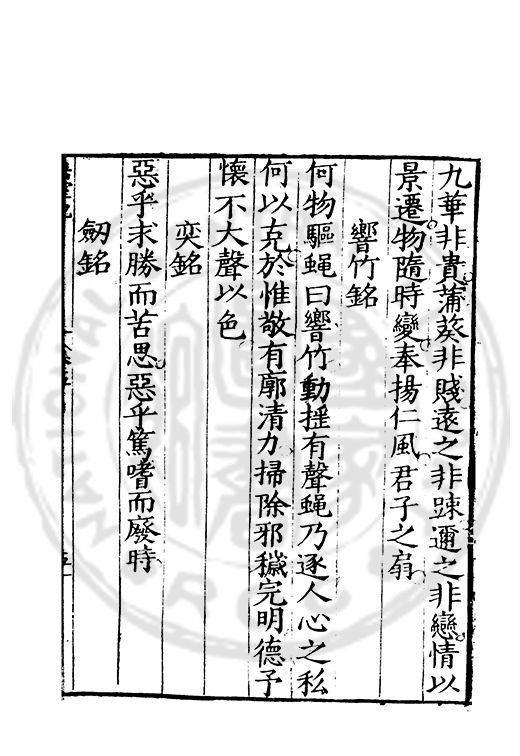 九華非貴蒲葵非賤遠之非踈邇之非戀情以
景遷物隨時變奉揚仁風君子之扇
響竹銘
何物驅蝇曰響竹動揺有聲蝇乃逐人心之私
何以克於惟敬有廓清力掃除邪穢完明德予
懷不大聲以色
奕銘
惡乎求勝而苦思惡乎篤嗜而廢時
劒銘